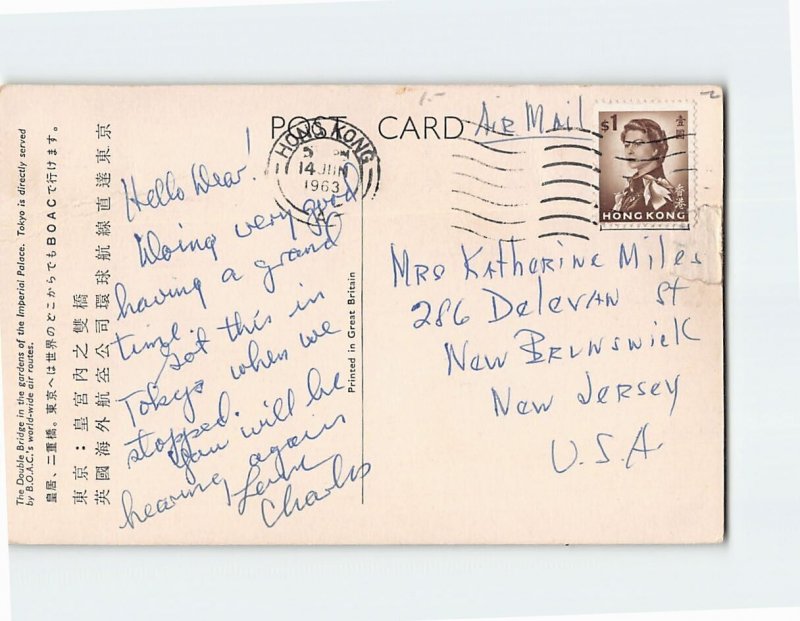 The Double Bridge in the gardens of the Imperial Palace. Tokyo is directly served
by B.O.A.C.'s world-wide air routes.
皇居、二重橋。東京へは世界のどこからでもBOACで行けます。
東京：皇宮內之雙橋
英國海外航空公司環球航線直達東京
POST CARD
Air Mail
HONG KONG
14 JUN
1963
$1
壹圓
香港
HONG KONG
Hello Dear!
Doing very good
having a grand
time.
Got this in
Tokyo when we
stopped.
You will be
hearing again
Love
Charles
Printed in Great Britain
Mrs Katherine Miles
286 Delevan St
New Brunswick
New Jersey
U.S.A.